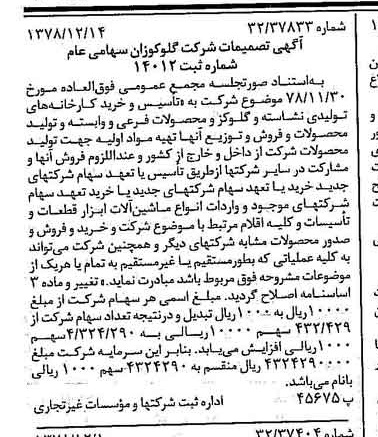 شماره ۳۲/۳۷۸۳۳ ۱۳۷۸/۱۲/۱۴
آگهی تصمیمات شرکت گلوکوزان سهامی عام
شماره ثبت ۱۴۰۱۲
به‌استناد صورتجلسه مجمع عمومی فوق‌العاده مورخ
۷۸/۱۱/۳۰ موضوع شرکت به «تأسیس و خرید کارخانه‌های
تولیدی نشاسته و گلوکز و محصولات فرعی و وابسته و تولید
محصولات و فروش و توزیع آنها تهیه مواد اولیه جهت تولید
محصولات شرکت از داخل و خارج از کشور و عنداللزوم فروش آنها و
مشارکت در سایر شرکتها ازطریق تأسیس یا تعهد سهام شرکتهای
جدید خرید یا تعهد سهام شرکتهای جدید یا خرید تعهد سهام
شرکتهای موجود و واردات انواع ماشین‌آلات ابزار قطعات و
تأسیسات و کلیه اقلام مرتبط با موضوع شرکت و خرید و فروش و
صدور محصولات مشابه شرکتهای دیگر و همچنین شرکت می‌تواند
به کلیه عملیاتی که بطورمستقیم یا غیرمستقیم به تمام یا هریک از
موضوعات مشروحه فوق مربوط باشد مبادرت نماید.» تغییر و ماده ۳
اساسنامه اصلاح گردید. مبلغ اسمی هر سهام شرکت از مبلغ
۱۰۰۰۰ ریال به ۱۰۰۰ ریال تبدیل و درنتیجه تعداد سهام شرکت از
۴۳۲/۴۲۹ سهم ۱۰۰۰۰ ریالی به ۴/۳۲۴/۲۹۰ سهم
۱۰۰۰ ریالی افزایش می‌یابد. بنابر این سرمایه شرکت مبلغ
۴۳۲۴۲۹۰۰۰۰ ریال منقسم به ۴۳۲۴۲۹۰ سهم ۱۰۰۰ ریالی
بانام می‌باشد.
پ ۴۵۶۷۵ اداره ثبت شرکتها و مؤسسات غیرتجاری